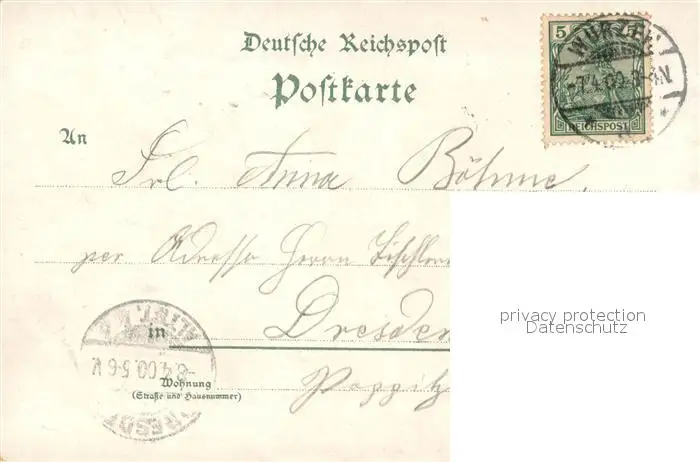 Deutsche Reichspost
Postkarte
5
REICHSPOST
WURZEN
-7.4.00.
An
Frl. Anna Böhme,
per Adresse Herrn
privacy protection
Datenschutz
in Dresden
-8.4.00.5-6V.
Wohnung
(Straße und Hausnummer)